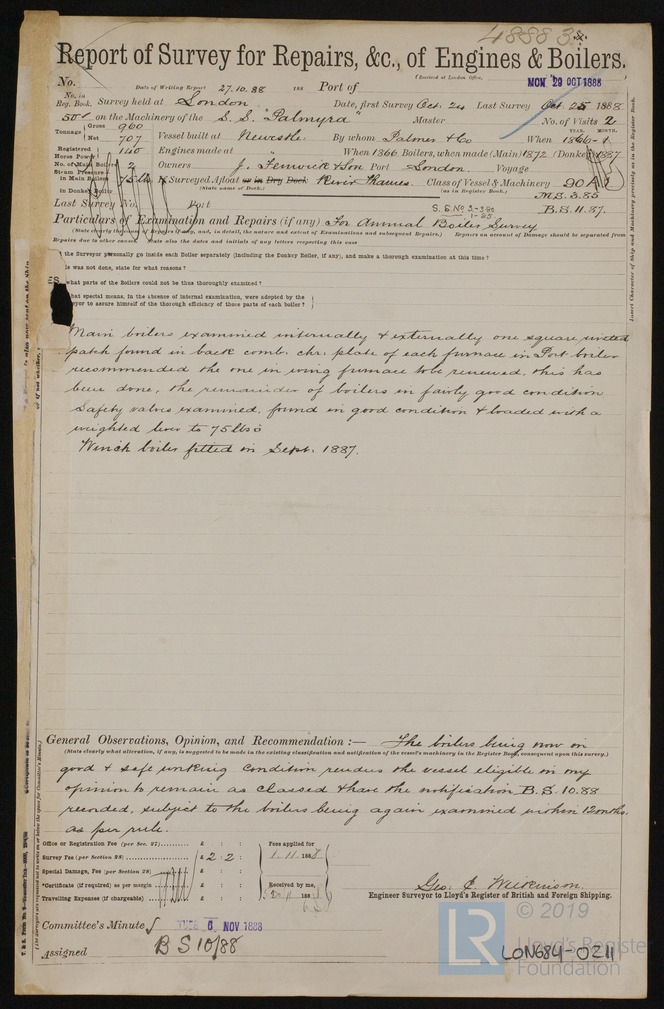 48883
Report of Survey for Repairs, &c., of Engines & Boilers.
(Received at London Office,
No. Date of Writing Report 27.10.88 188 Port of MON. 29 OCT 1888
No. in Reg. Book. Survey held at London Date, first Survey Oct. 24 Last Survey Oct. 25 1888.
501 on the Machinery of the S. S. "Palmyra" Master No. of Visits 2
Tonnage Gross 960 Net 707 Vessel built at Newcstle By whom Palmer & Co When 1866-1 YEAR. MONTH.
Registered Horse Power 140 Engines made at " When 1866 Boilers, when made (Main) 1872 (Donkey) 1887
No. of Main Boilers 2 Owners J. Fenwick & Son Port London. Voyage
Steam Pressure in Main Boilers 75 lbs If Surveyed Afloat or in Dry Dock River Thames. Class of Vessel & Machinery 90A1
(State name of Dock.) (as in Register Book.)
in Donkey Boiler M.S. 3.85
Last Survey No. Port S. S. No 2- B.S. 11.87.
Particulars of Examination and Repairs (if any) For Annual Boiler Survey
(State clearly the nature of Repairs if any, and, in detail, the nature and extent of Examinations and subsequent Repairs.) Repairs on account of Damage should be separated from
Repairs due to other causes. State also the dates and initials of any letters respecting this case
the Surveyor personally go inside each Boiler separately (including the Donkey Boiler, if any), and make a thorough examination at this time?
is was not done, state for what reasons?
what parts of the Boilers could not be thus thoroughly examined?
hat special means, in the absence of internal examination, were adopted by the
yor to assure himself of the thorough efficiency of those parts of each boiler?
Main boilers examined internally & externally one square riveted
patch found in back comb. chr. plate of each furnace in Port boiler
recommended the one in wing furnace to be renewed, this has
been done, the remainder of boilers in fairly good condition
Safety valves examined, found in good condition & loaded with a
weighted lever to 75 lbs
Winch boiler fitted in Sept. 1887.
General Observations, Opinion, and Recommendation :— The boilers being now in
(State clearly what alteration, if any, is suggested to be made in the existing classification and notification of the vessel's machinery in the Register Book, consequent upon this survey.)
good & safe working condition renders the vessel eligible in my
opinion to remain as classed & have the notification B.S. 10.88
recorded, subject to the boilers being again examined within 12 mths.
as per rule.
Office or Registration Fee (per Sec. 27) £ : : Fees applied for
Survey Fee (per Section 28) £ 2 : 2 : 1.11.1888.
Special Damage, Fee (per Section 28) £ : :
*Certificate (if required) as per margin £ : : Received by me,
Travelling Expenses (if chargeable) £ : :
Geo. C. Wilkinson.
Engineer Surveyor to Lloyd's Register of British and Foreign Shipping.
Committee's Minute TUES 6 NOV 1888
Assigned B S 10/88
© 2019
LR
Lloyd's Register
Foundation
LON684-0211